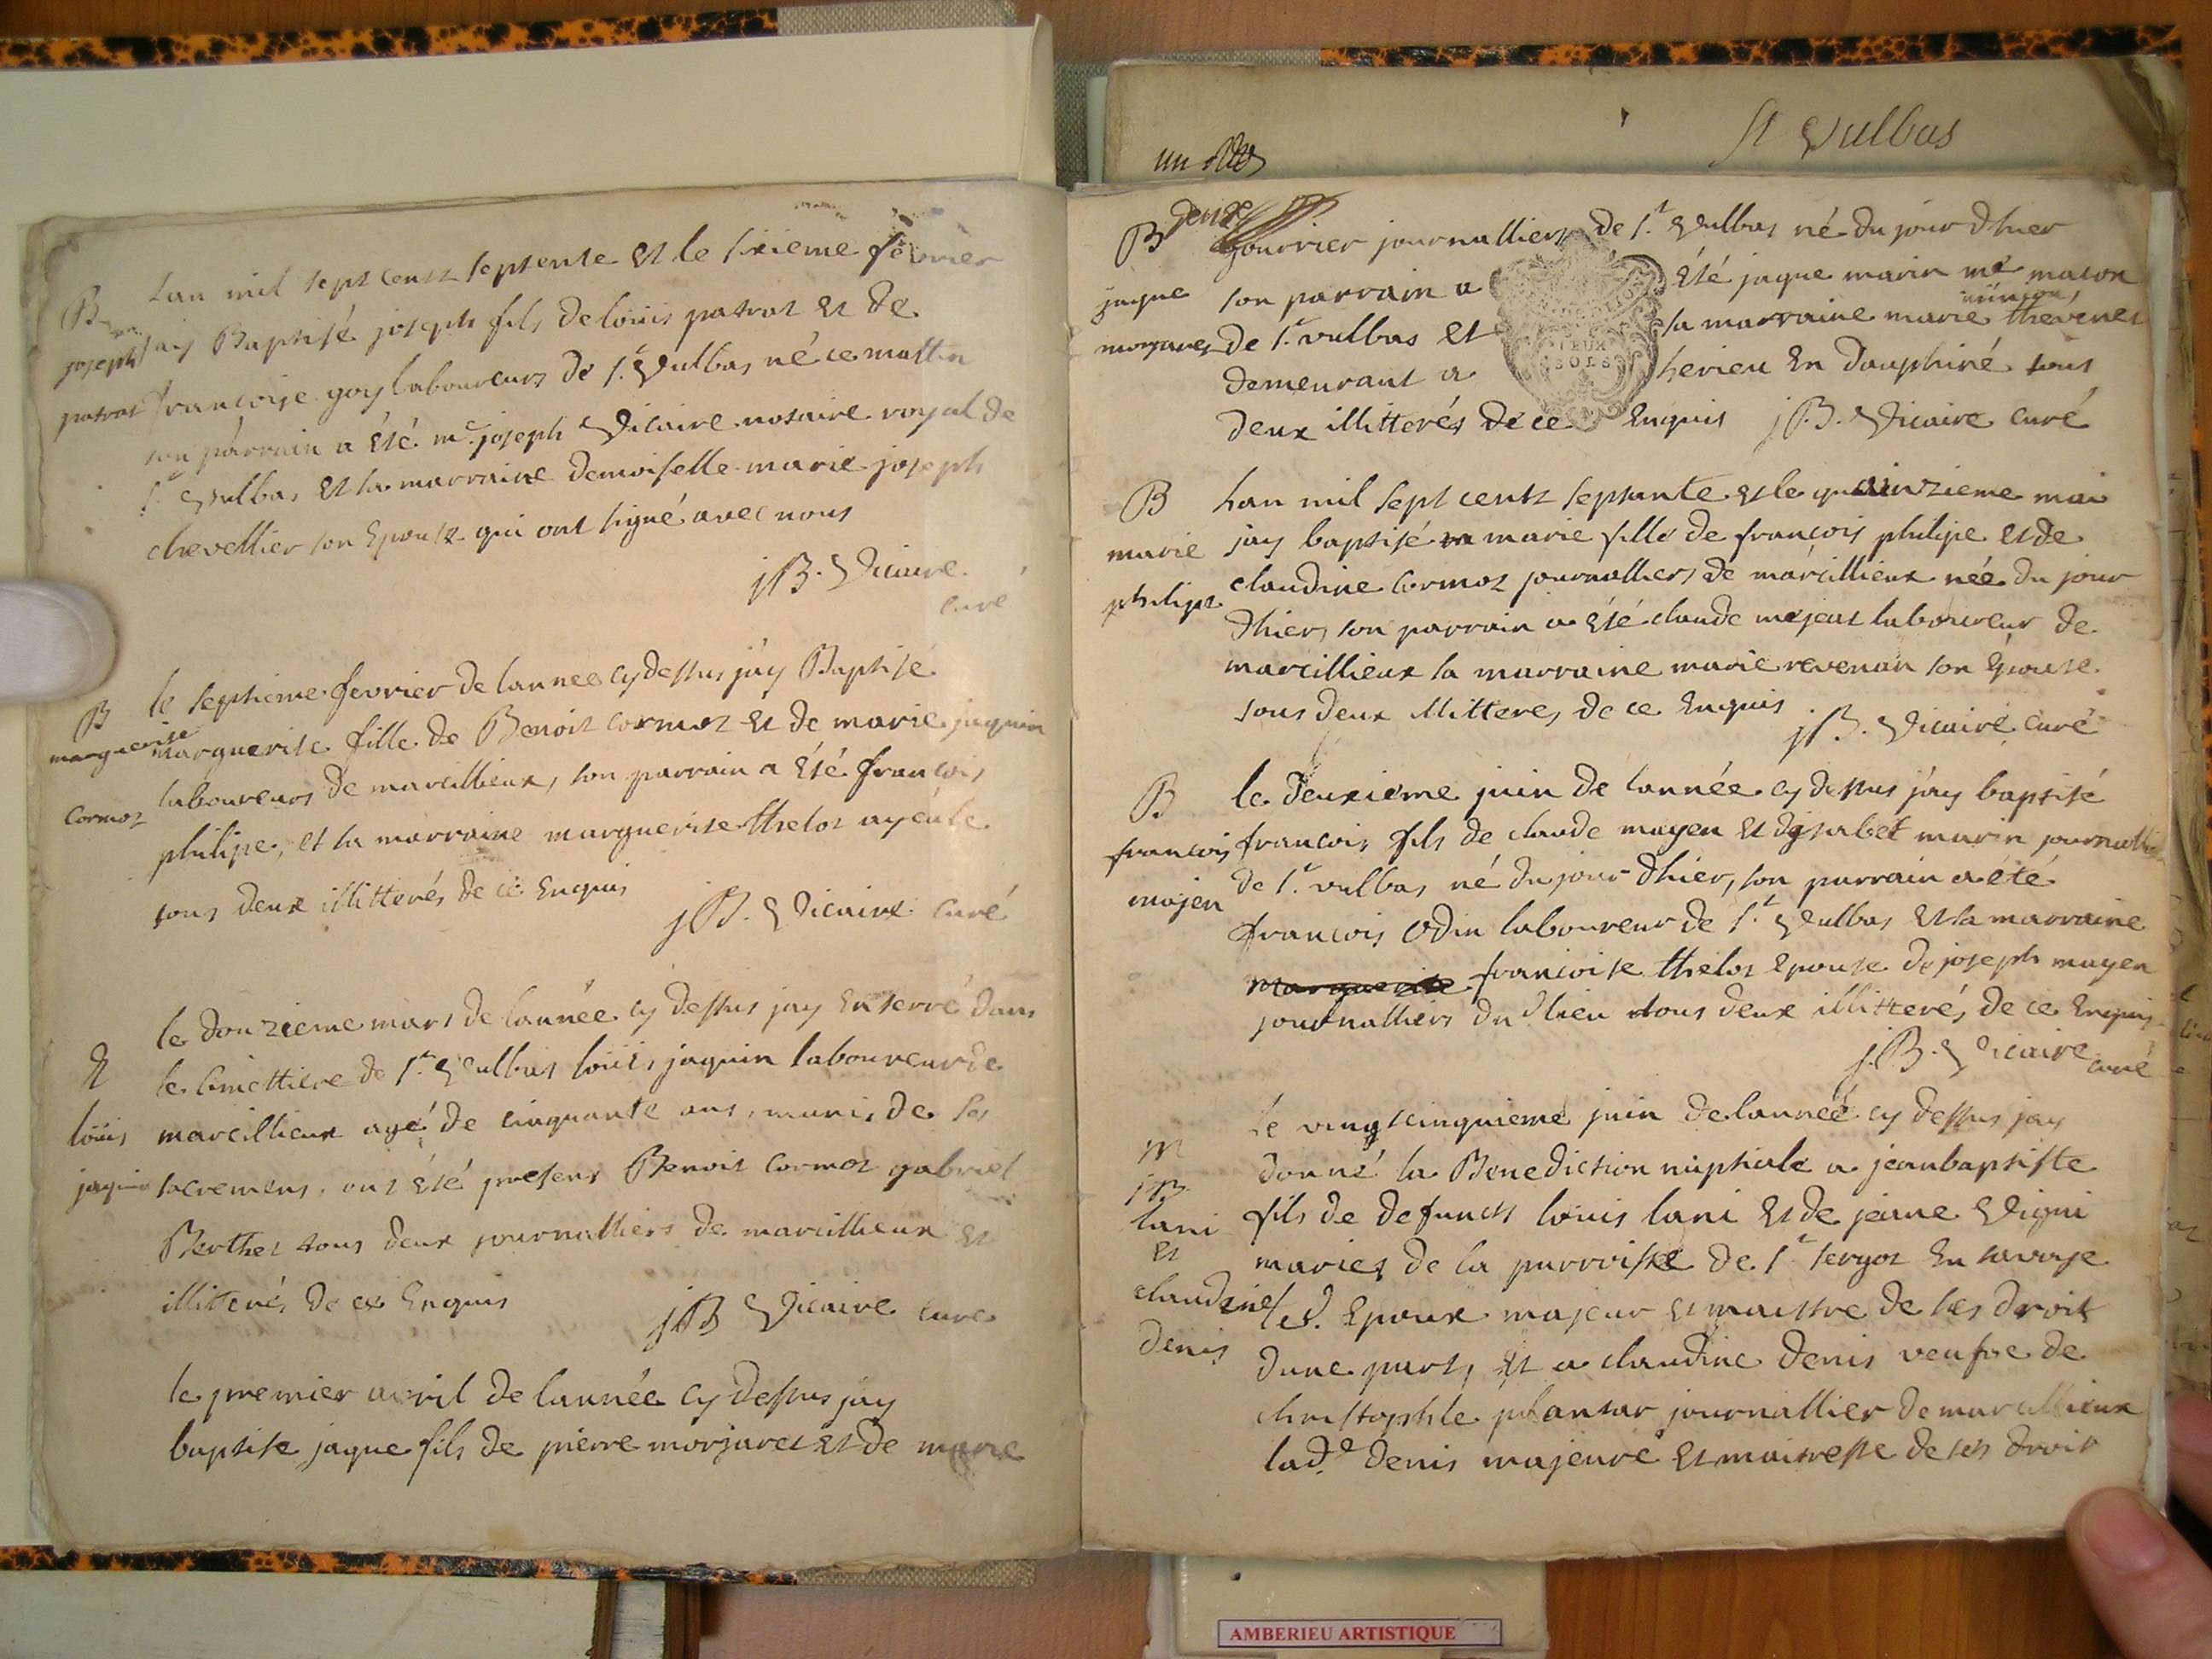 B
joseph
patrat
Lan mil sept cents septente et le sixieme fevrier
jay Baptisé joseph fils de loüis patrat et de
francoise goy laboureurs de St. Vulbas né ce mattin
son parrain a été me. joseph Vicaire notaire royal de
St Vulbas et la marraine demoiselle marie joseph
chevellier son Epouse qui ont signé avec nous
jB. Vicaire
curé
B
marguerite
cormot
le septieme fevrier de lannee cy dessus jay Baptisé
marguerite fille de Benoit cormot et de marie jaquin
laboureurs de marcillieux, son parrain a été francois
philipe, et la marraine marguerite thelot ayeule
tous deux illitterés de ce Enquis
jB. Vicaire curé
E
loüis
jaquin
le douzieme mars de lannée cy dessus jay Enterré dans
le cimettiere de St. Vulbas loüis jaquin laboureur de
marcillieux agé de cinquante ans, muni, de ses
sacremens, ont été presens Benoit cormot gabriel
Berthet tous deux journalliers de marcillieux et
illitterés de ce Enquis
jB Vicaire curé
le premier avril de lannée cy dessus jay
baptise jaque fils de pierre morjaret et de marie
St Vulbas
un
deux
B
jaque
gourrier journalliers de St. Vulbas né du jour dhier
son parrain a été jaque marin me macon
de St. vulbas et sa marraine marie thevenet
demeurant a herieu En dauphiné tous
deux illitterés de ce Enquis jB. Vicaire curé
B
marie
philipe
Lan mil sept cents septante et le quainzieme mai
jay baptisé marie fille de françois philipe et de
claudine cormot journalliers de marcillieux née du jour
dhier, son parrain a été claude mejeat laboureur de
marcillieux la marraine marie revenan son Epouse
tous deux illitteres de ce Enquis
jB. Vicaire curé
B
francois
mojen
le deuxieme juin de lannée cy dessus jay baptisé
francois fils de claude moyen et dysabet marin journalliers
de St. vulbas né du jour dhier, son parrain a été
francois Odin laboureur de St. Vulbas et la marraine
marguerite francoise thelot epouse de joseph moyen
journalliers du dlieu tous deux illitterés de ce Enquis
jB. Vicaire curé
m
jB
lani
et
claudine
denis
le vingtcinquieme juin de lannée cy dessus jay
donné la Benediction nuptiale a jeanbaptiste
fils de defuncts loüis lani et de jeane Vigni
mariés de la parroisse de St sergot En savoye
led. Epoux majeur et maistre de ses droit
dune part, et a claudine denis veufve de
christophle plantar journallier de marcillieux
lad.e denis majeure et maitresse de ses droit
AMBERIEU ARTISTIQUE